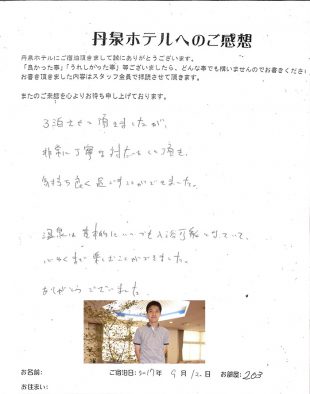 丹泉ホテルへのご感想
丹泉ホテルにご宿泊頂きまして誠にありがとうございます。
「良かった事」「うれしかった事」等ございましたら、どんな事でも構いませんのでお書きくださ
お書き頂きました内容はスタッフ全員で拝読させて頂きます。
またのご来館を心よりお待ち申し上げております。
3泊させて頂きましたが、
非常に丁寧な対応をして頂き、
気持ち良く過ごすことができました。
温泉は基本的にいつでも入浴可能となっていて、
心ゆくまで楽しむことができました。
ありがとうございました。
お名前:
ご宿泊日:2017年 9月12日
お部屋:203
お住まい: